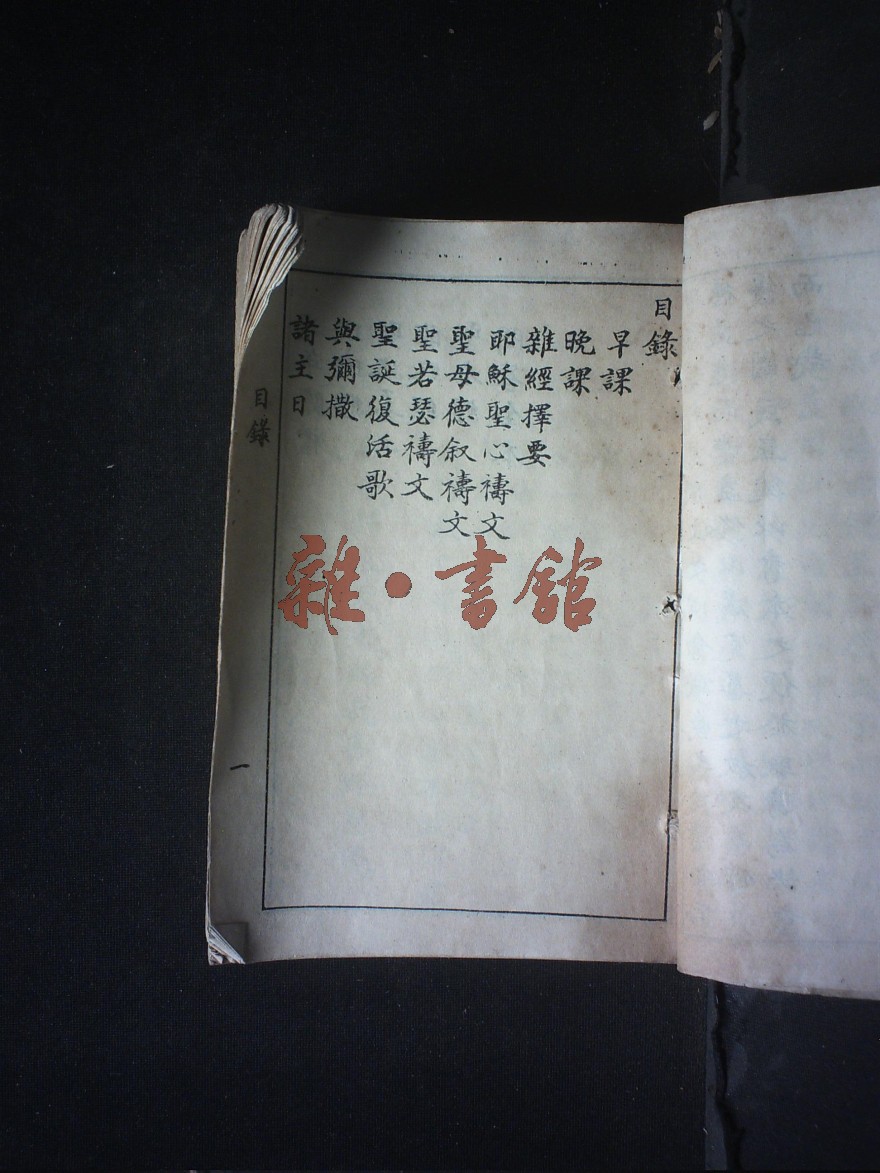 目錄
早課
晚課
雜經擇要
耶穌聖心禱文
聖母德叙禱文
聖若瑟禱文
聖誕復活歌
與彌撒
諸主日
目錄
一
雜•書館